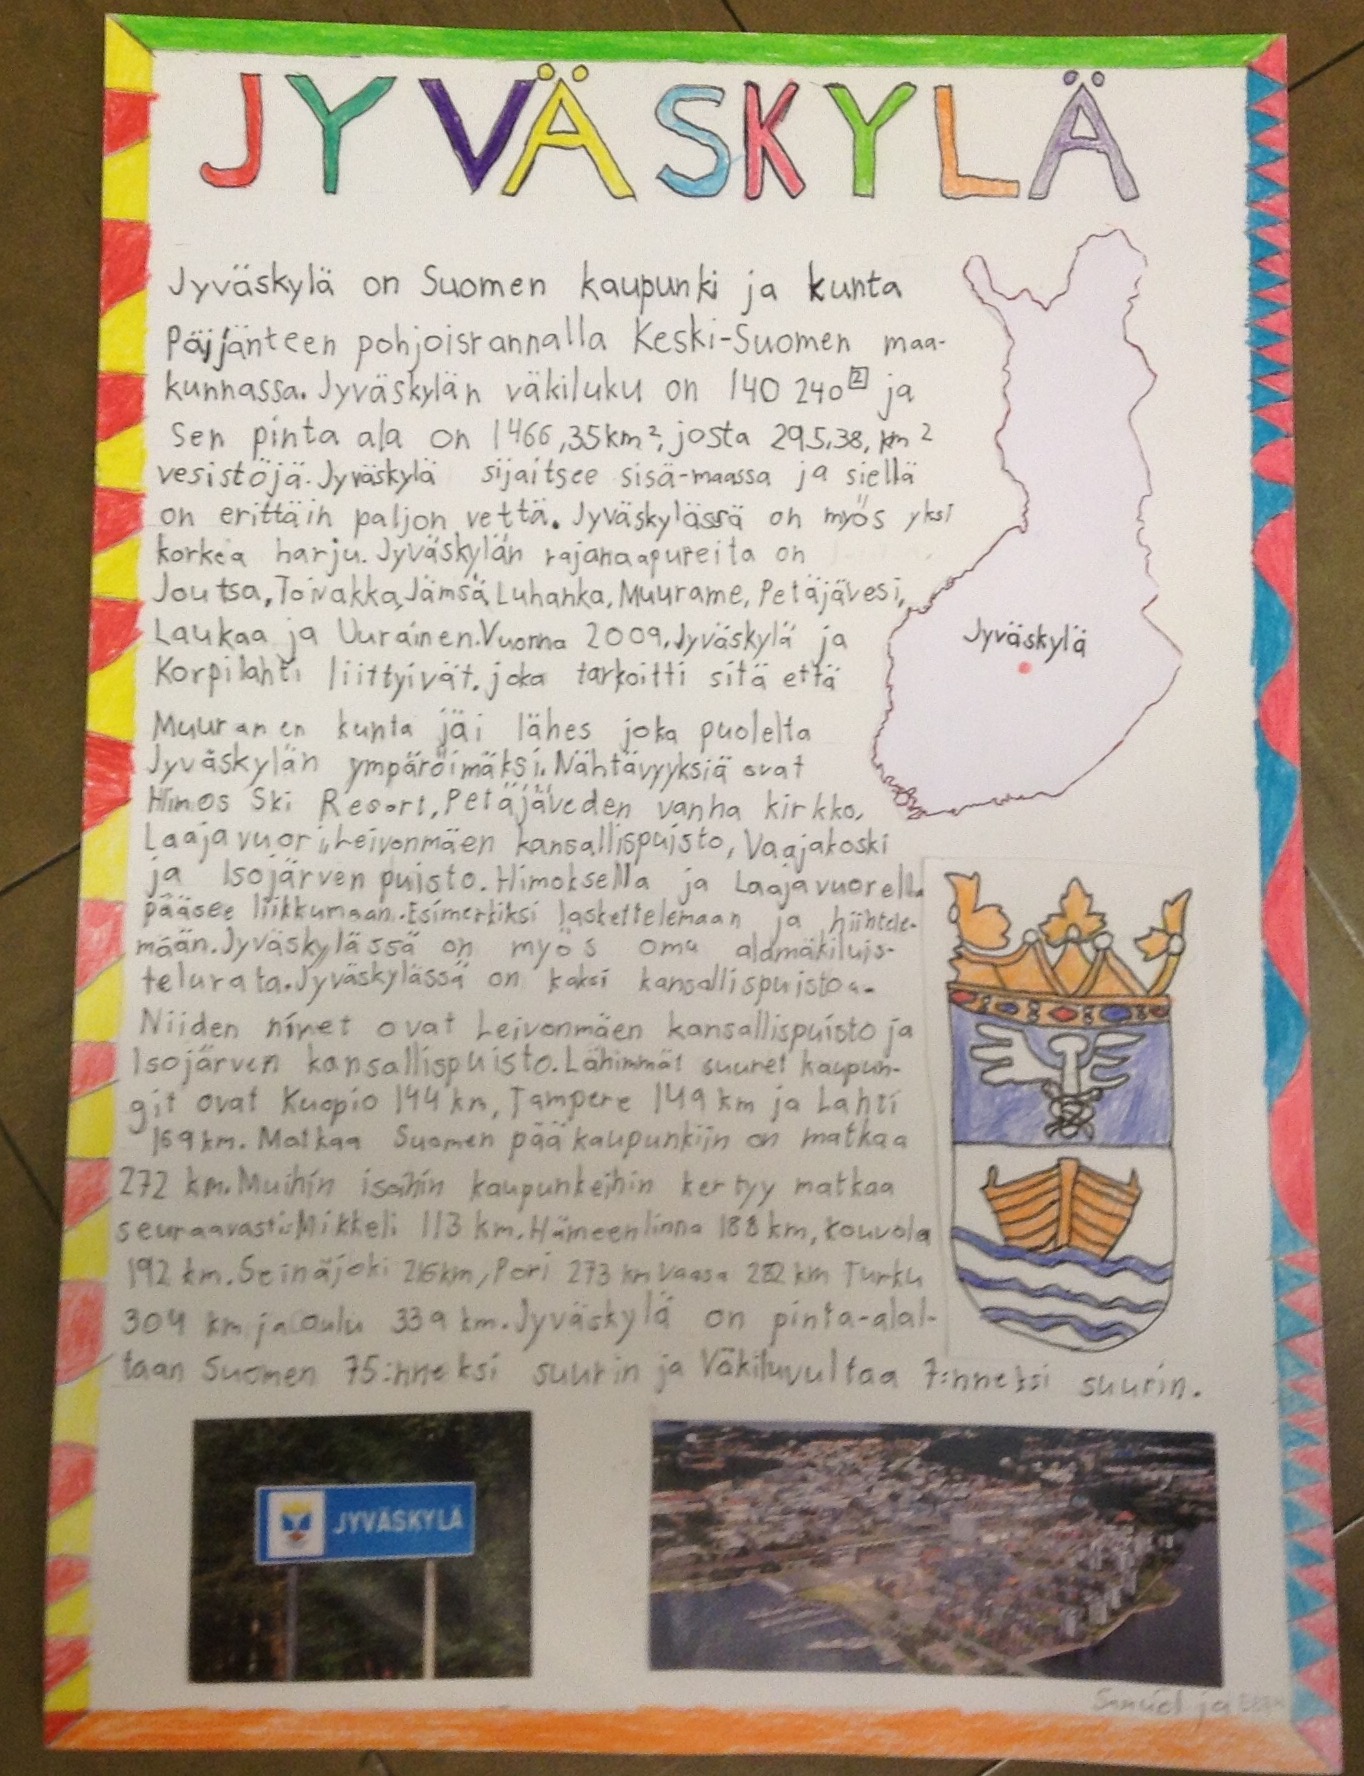 JYVÄSKYLÄ
Jyväskylä on Suomen kaupunki ja kunta
Päijänteen pohjoisrannalla Keski-Suomen maa-
kunnassa. Jyväskylän väkiluku on 140 240[2] ja
sen pinta ala on 1466,35km², josta 295,38, km²
vesistöjä. Jyväskylä sijaitsee sisä-maassa ja siellä
on erittäin paljon vettä. Jyväskylässä on myös yksi
korkea harju. Jyväskylän rajanaapureita on
Joutsa, Toivakka, Jämsä, Luhanka, Muurame, Petäjävesi,
Laukaa ja Uurainen. Vuonna 2009, Jyväskylä ja
Korpilahti liittyivät. joka tarkoitti sitä että
Muuranen kunta jäi lähes joka puolelta
Jyväskylän ympäröimäksi. Nähtävyyksiä ovat
Himos Ski Resort, Petäjäveden vanha kirkko,
Laajavuori, Leivonmäen kansallispuisto, Vaajakoski
ja Isojärven puisto. Himoksella ja Laajavuorella
pääsee liikkumaan. Esimerkiksi laskettelemaan ja hiihtele-
mään. Jyväskylässä on myös oma alamäkiluis-
telurata. Jyväskylässä on kaksi kansallispuistoa.
Niiden nimet ovat Leivonmäen kansallispuisto ja
Isojärven kansallispuisto. Lähimmät suuret kaupun-
git ovat Kuopio 144 km, Tampere 149 km ja Lahti
169 km. Matkaa Suomen pääkaupunkiin on matkaa
272 km. Muihin isoihin kaupunkeihin kertyy matkaa
seuraavasti: Mikkeli 113 km. Hämeenlinna 188 km, Kouvola
192 km. Seinäjoki 216km, Pori 273 km Vaasa 282 km Turku
304 km ja Oulu 339 km. Jyväskylä on pinta-alal-
taan Suomen 75:nneksi suurin ja Väkiluvultaa 7:nneksi suurin.
Jyväskylä
JYVÄSKYLÄ
ja